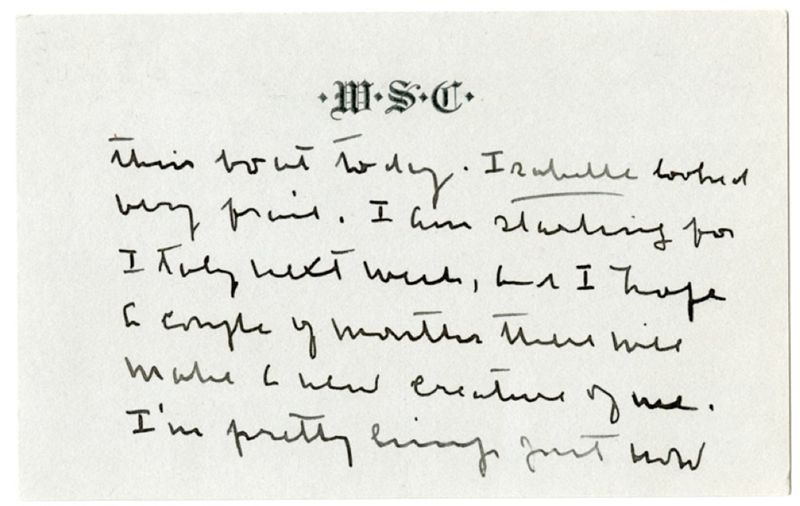 ·W·S·C·
their boat today. Isabelle looked
very frail. I am starting for
Italy next week, and I hope
a couple of months there will
make a new creature of me.
I'm pretty limp just now